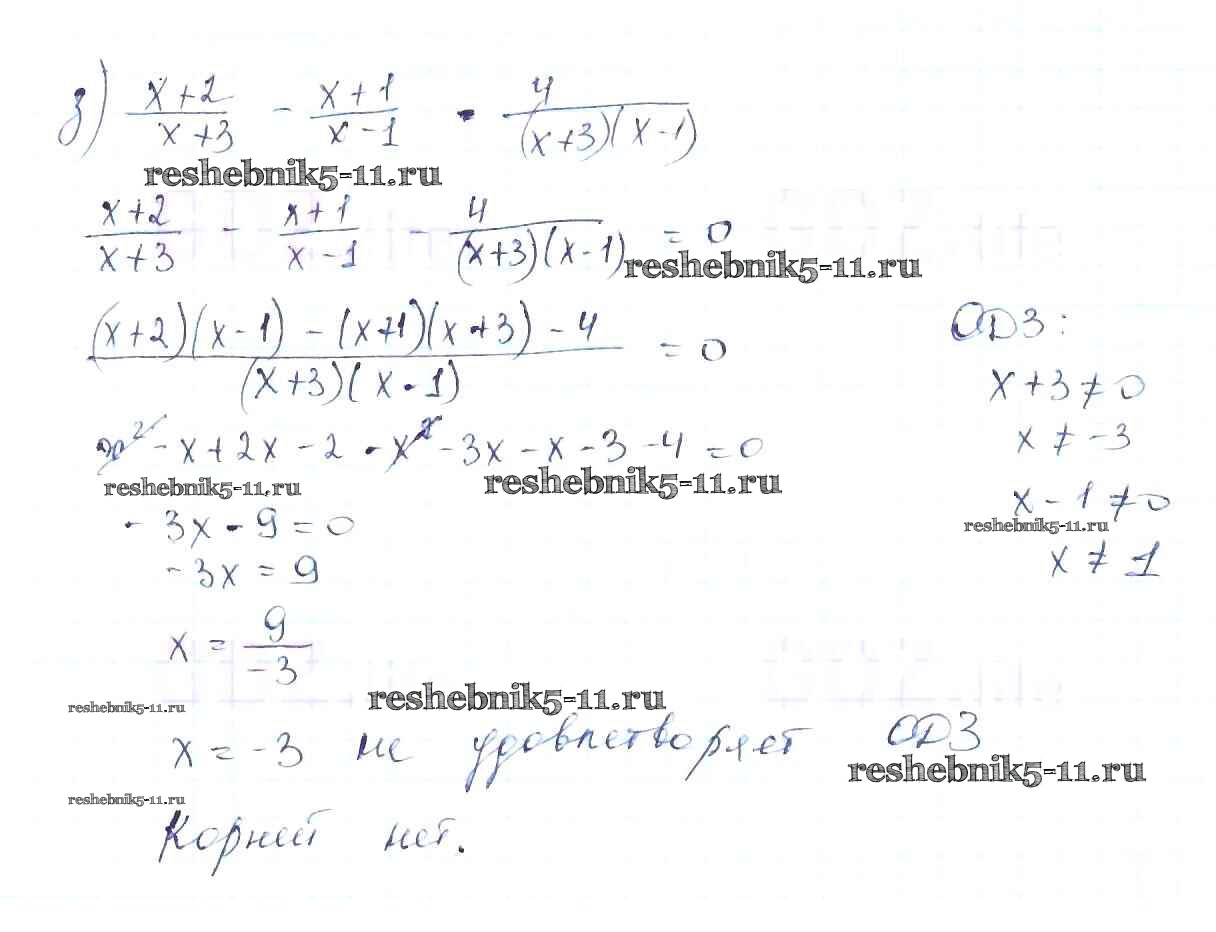 з) (x+2)/(x+3) - (x+1)/(x-1) - 4/((x+3)(x-1))
reshebnik5-11.ru
(x+2)/(x+3) - (x+1)/(x-1) - 4/((x+3)(x-1)) = 0
reshebnik5-11.ru
((x+2)(x-1) - (x+1)(x+3) - 4)/((x+3)(x-1)) = 0
ОДЗ:
x+3≠0
x≠-3
x-1≠0
reshebnik5-11.ru
x≠1
x² - x + 2x - 2 - x² - 3x - x - 3 - 4 = 0
reshebnik5-11.ru
reshebnik5-11.ru
-3x - 9 = 0
-3x = 9
x = 9/-3
reshebnik5-11.ru
reshebnik5-11.ru
x = -3 не удовлетворяет ОДЗ
reshebnik5-11.ru
reshebnik5-11.ru
Корней нет.